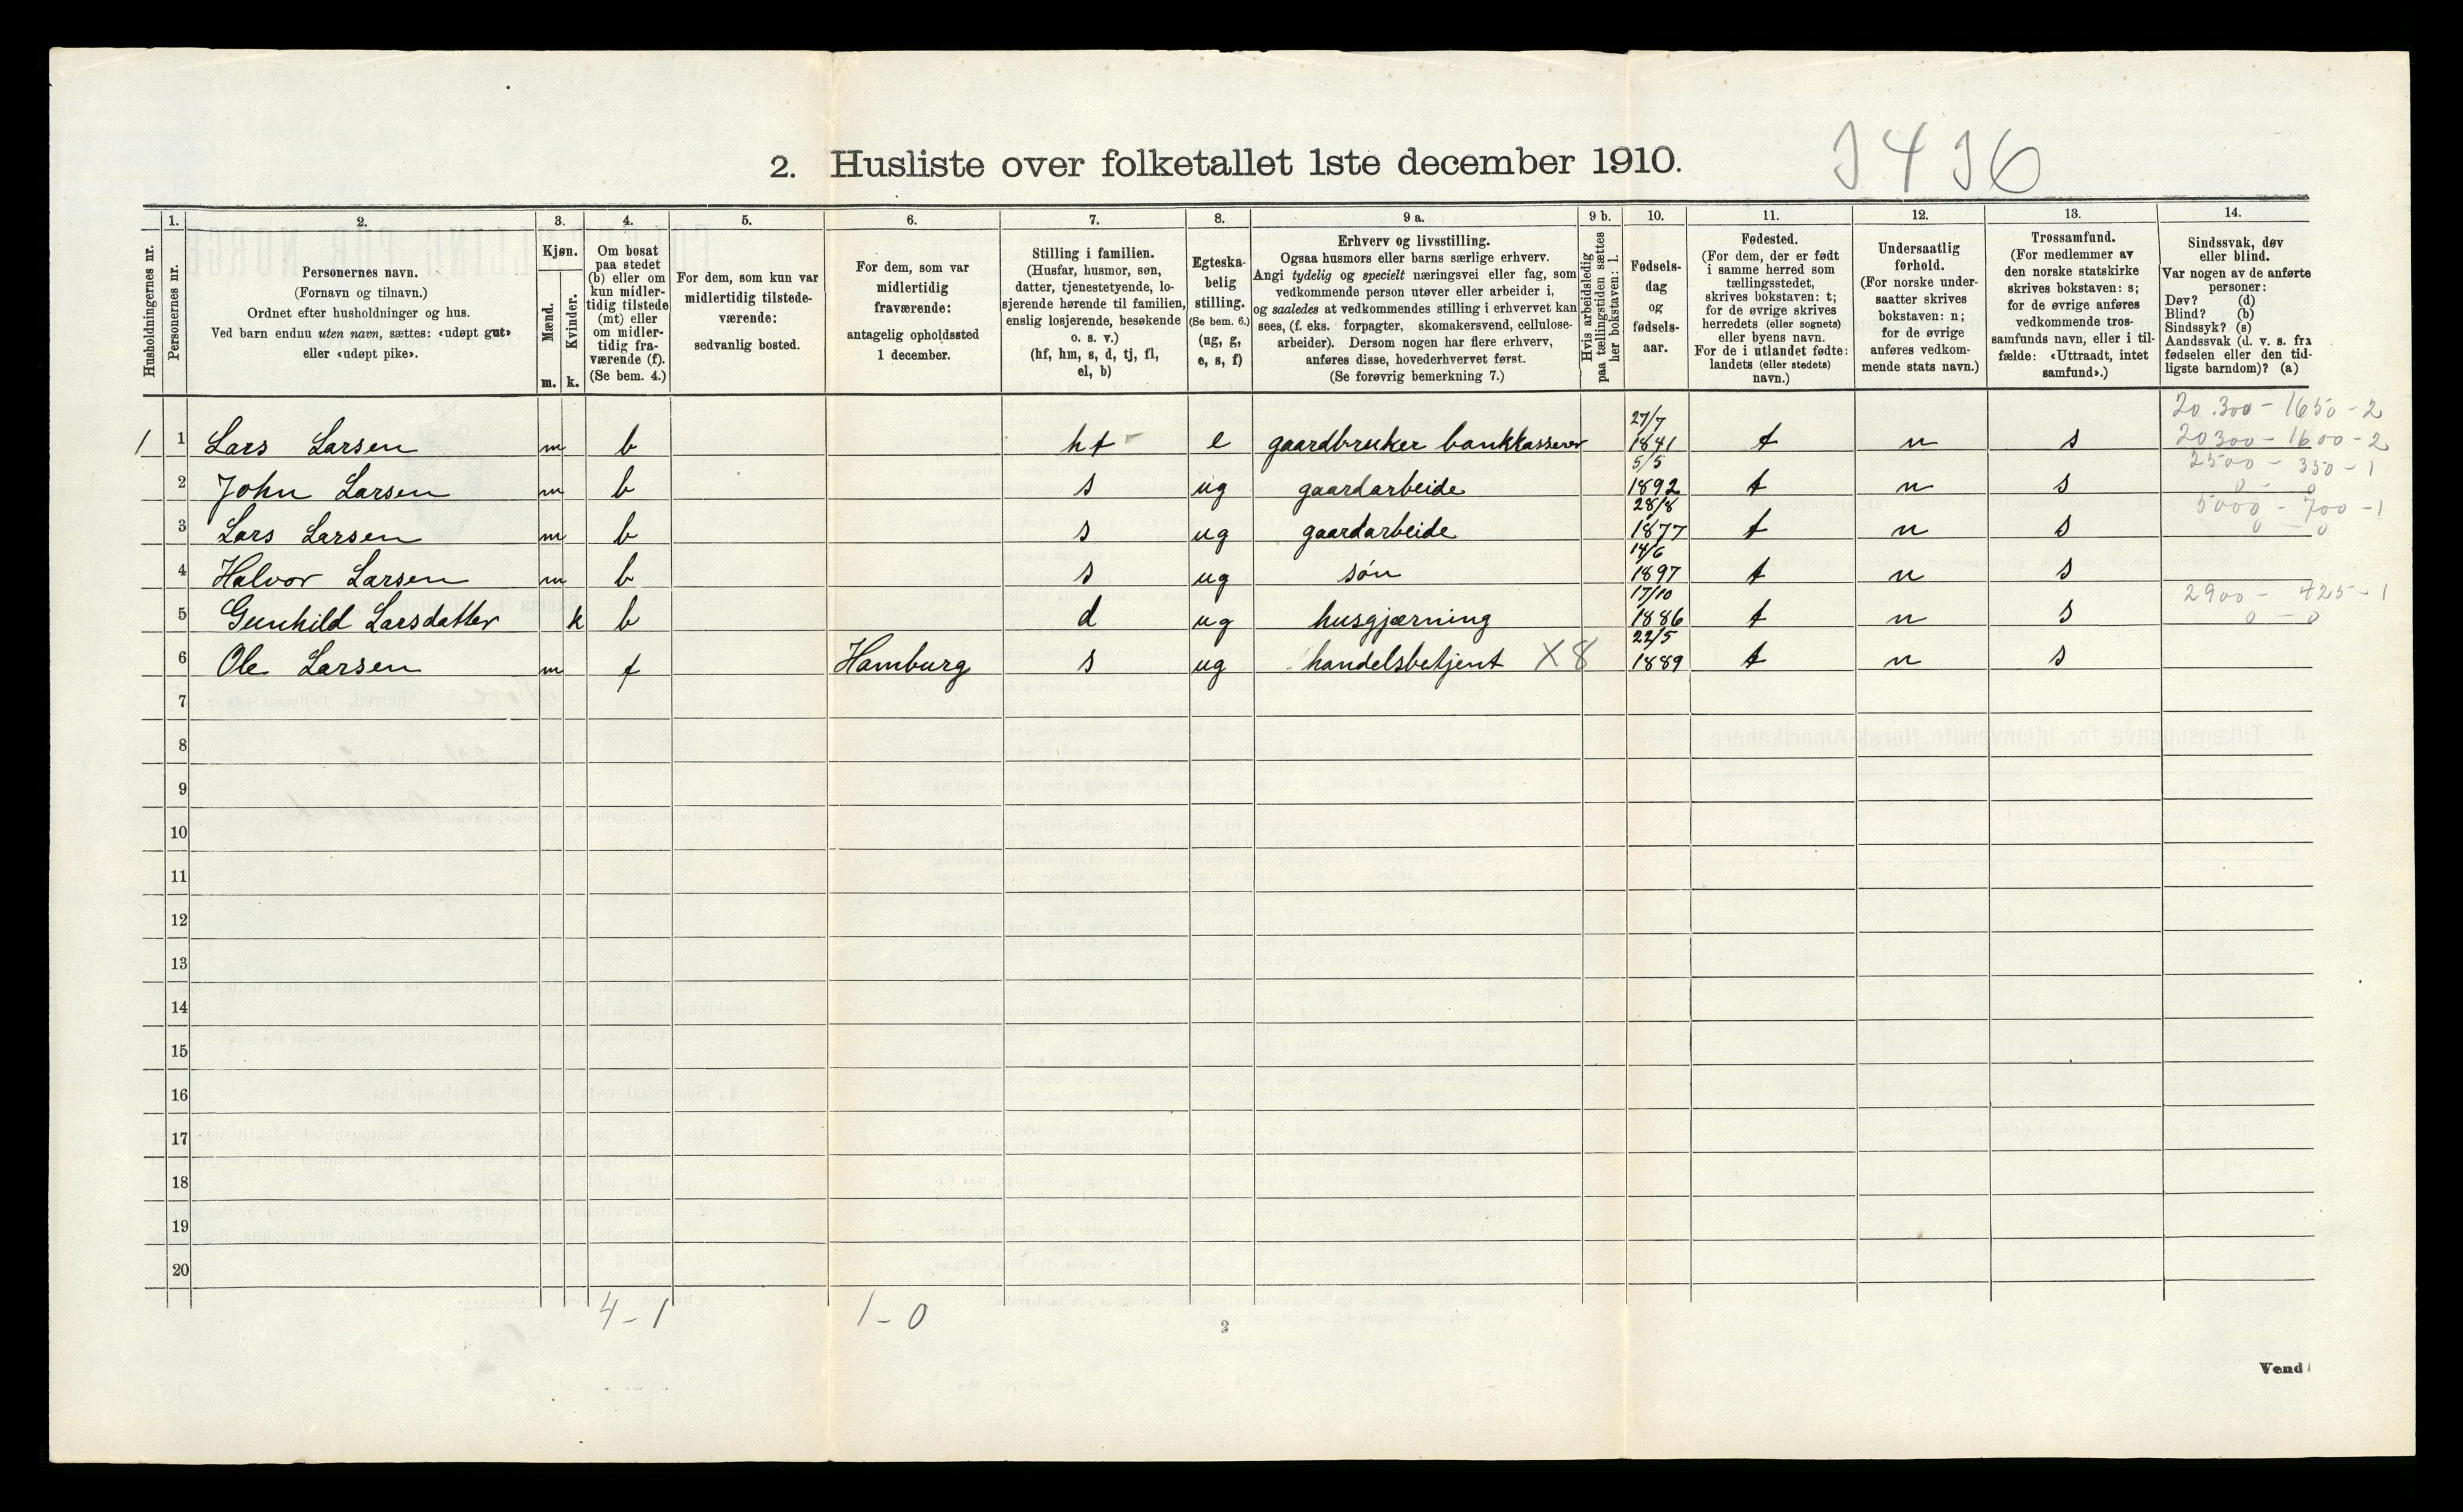 2. Husliste over folketallet 1ste december 1910.
Husholdningernes nr.
1.
Personernes nr.
2.
Personernes navn.
(Fornavn og tilnavn.)
Ordnet efter husholdninger og hus.
Ved barn endnu uten navn, sættes: «udøpt gut»
eller «udøpt pike».
3.
Kjøn.
Mænd.
Kvinder.
m. k.
4.
Om bosat
paa stedet
(b) eller om
kun midler-
tidig tilstede
(mt) eller
om midler-
tidig fra-
værende (f).
(Se bem. 4.)
5.
For dem, som kun var
midlertidig tilstede-
værende:
sedvanlig bosted.
6.
For dem, som var
midlertidig
fraværende:
antagelig opholdssted
1 december.
7.
Stilling i familien.
(Husfar, husmor, søn,
datter, tjenestetyende, lo-
sjerende hørende til familien,
enslig losjerende, besøkende
o. s. v.)
(hf, hm, s, d, tj, fl,
el, b)
8.
Egteska-
belig
stilling.
(Se bem. 6.)
(ug, g,
e, s, f)
9 a.
Erhverv og livsstilling.
Ogsaa husmors eller barns særlige erhverv.
Angi tydelig og specielt næringsvei eller fag, som
vedkommende person utøver eller arbeider i,
og saaledes at vedkommendes stilling i erhvervet kan
sees, (f. eks. forpagter, skomakersvend, cellulose-
arbeider). Dersom nogen har flere erhverv,
anføres disse, hovederhvervet først.
(Se forøvrig bemerkning 7.)
9 b.
Hvis arbeidsledig
paa tællingstiden sættes
her bokstaven: l.
10.
Fødsels-
dag
og
fødsels-
aar.
11.
Fødested.
(For dem, der er født
i samme herred som
tællingsstedet,
skrives bokstaven: t;
for de øvrige skrives
herredets (eller sognets)
eller byens navn.
For de i utlandet fødte:
landets (eller stedets)
navn.)
12.
Undersaatlig
forhold.
(For norske under-
saatter skrives
bokstaven: n;
for de øvrige
anføres vedkom-
mende stats navn.)
13.
Trossamfund.
(For medlemmer av
den norske statskirke
skrives bokstaven: s;
for de øvrige anføres
vedkommende tros-
samfunds navn, eller i til-
fælde: «Uttraadt, intet
samfund».)
14.
Sindssvak, døv
eller blind.
Var nogen av de anførte
personer:
Døv? (d)
Blind? (b)
Sindssyk? (s)
Aandssvak (d. v. s. fra
fødselen eller den tid-
ligste barndom)? (a)
20.300 - 1650 - 2
1 1 Lars Larsen m b hf e gaardbruker bankkasserer 27/7 1841 t n s 20300 - 1600 - 2
2500 - 350 - 1
2 John Larsen m b s ug gaardarbeide 5/5 1892 t n s 0 - 0
5000 - 700 - 1
3 Lars Larsen m b s ug gaardarbeide 28/8 1877 t n s 0 - 0
4 Halvor Larsen m b s ug søn 14/6 1897 t n s
2900 - 425 - 1
5 Gunhild Larsdatter k b d ug husgjærning 17/10 1886 t n s 0 - 0
6 Ole Larsen m f Hamburg s ug handelsbetjent X8 22/5 1889 t n s
7
8
9
10
11
12
13
14
15
16
17
18
19
20
4 - 1 1 - 0
Vend